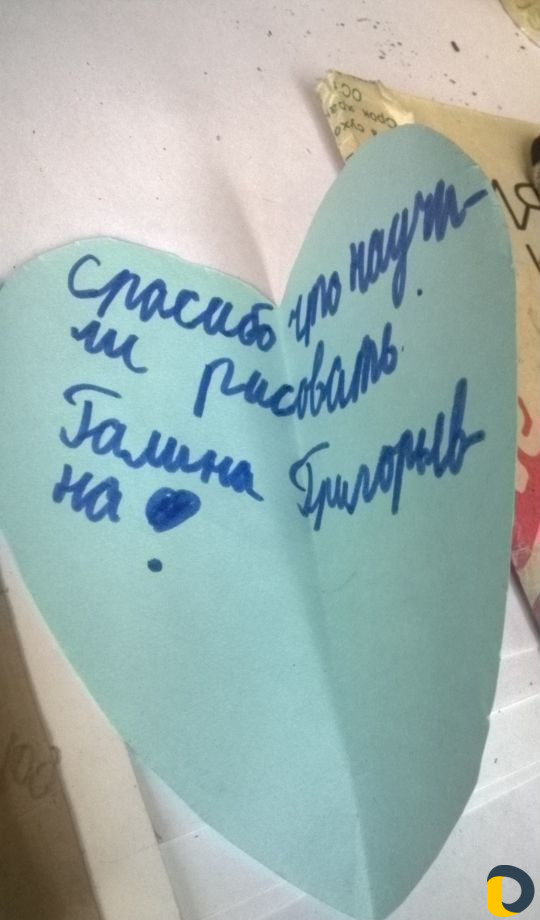 спасибо что научи-
ли рисовать.
Галина Григорьев-
на